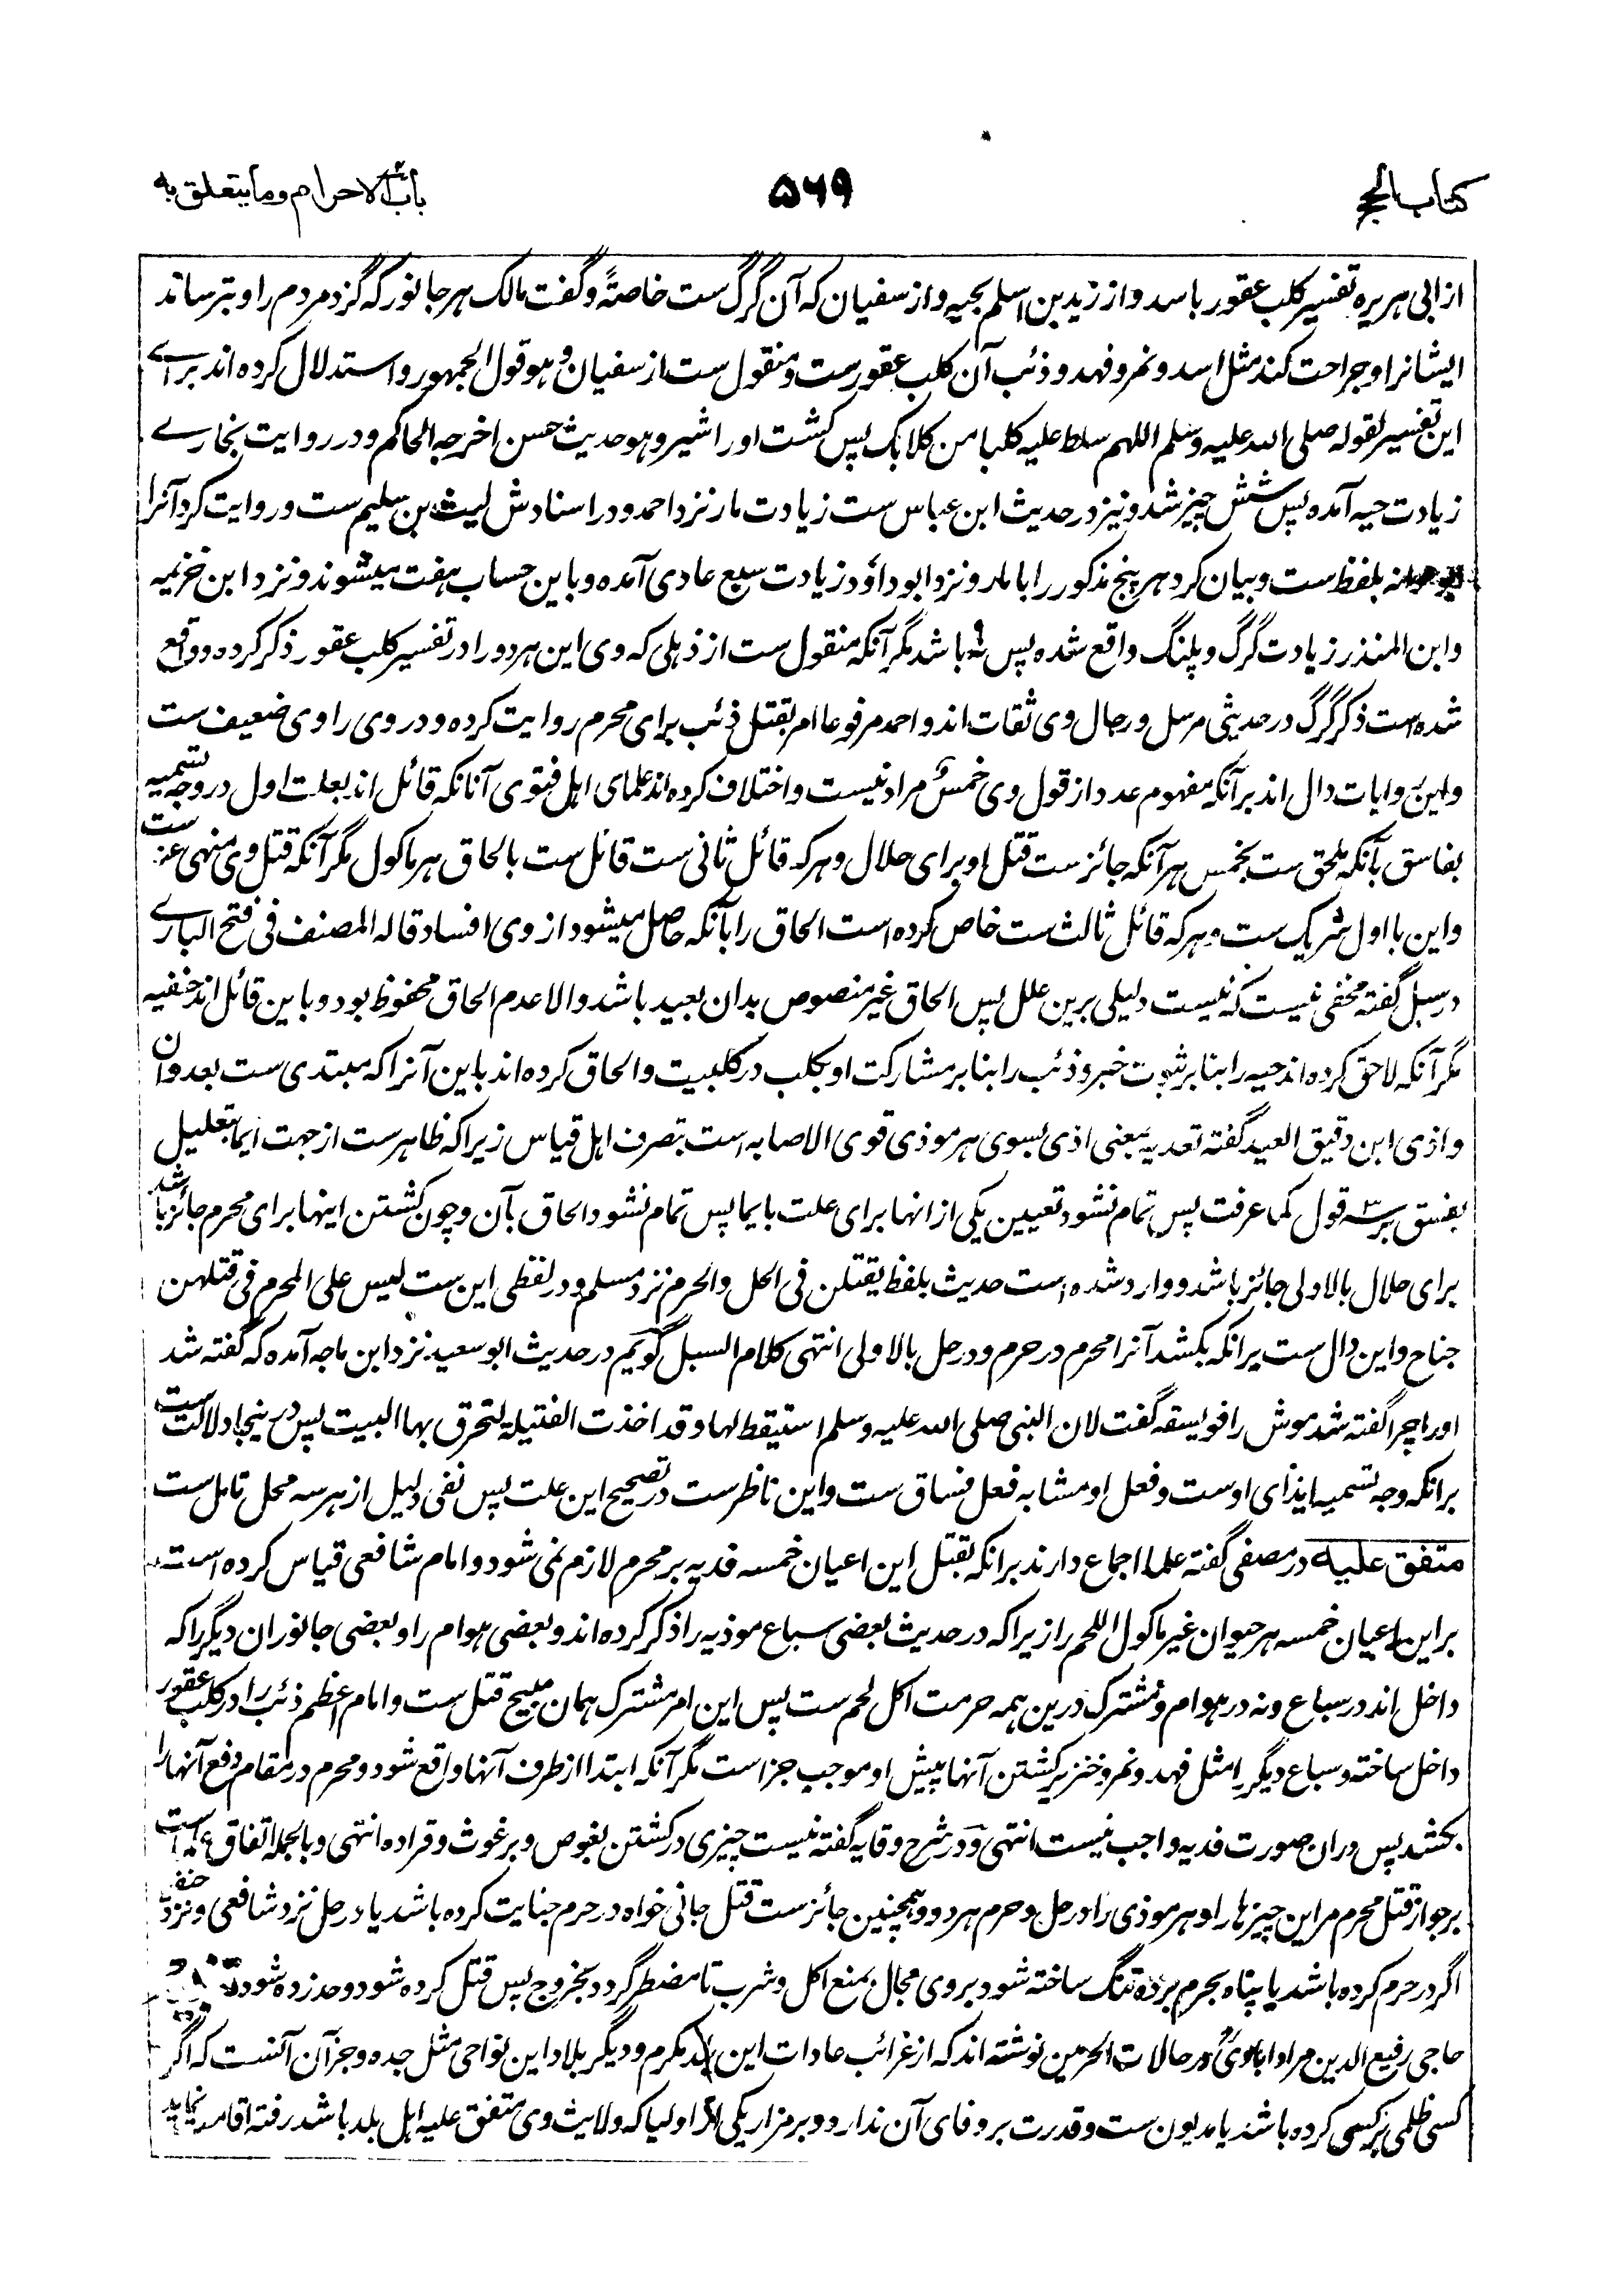 کتاب الحج
۵۶۹
باب الاحرام وما یتعلق به
از ابی هریره تفسیر کلب عقور باسد و از زید بن اسلم بحیه و از سفیان که آن گرگ ست خاصةً و گفت مالک هر جانور که گزد مردم را و بترساند
ایشانرا و جراحت کند مثل اسد و نمر و فهد و ذئب آن کلب عقورست و منقول ست از سفیان و هو قول الجمهور و استدلال کرده اند برای
این تفسیر بقوله صلی الله علیه وسلم اللهم سلط علیه کلبا من کلابک پس کشت او را شیر و هو حدیث حسن اخرجه الحاکم و در روایت بخاری
زیادت حیه آمده پس شش چیز شد و نیز در حدیث ابن عباس ست زیادت مار نزد احمد و در اسنادش لیث بن سلیم ست و روایت کرد آنرا
بلفظ ست و بیان کرد هر پنج مذکور را با مار و نزد ابو داؤد زیادت سبع عادی آمده و باین حساب هفت میشوند و نزد ابن خزیمه
وابن المنذر زیادت گرگ و پلنگ واقع شده پس نه باشد مگر آنکه منقول ست از ذهلی که وی این هر دو را در تفسیر کلب عقور ذکر کرده و واقع
شده است ذکر گرگ در حدیثی مرسل و رجال وی ثقات اند و احمد مرفوعا امر بقتل ذئب برای محرم روایت کرده و در وی راوی ضعیف ست
و این روایات دال اند بر آنکه مفهوم عدد از قول وی خمسٌ مراد نیست و اختلاف کرده اند علمای اهل فتوی آنانکه قائل اند بعلت اول در وجه تسمیه
بفاسق بآنکه ملحق ست بخمس هر آنکه جائز ست قتل او برای حلال و هر که قائل ثانی ست قائل ست بالحاق هر ماکول مگر آنکه قتل وی منهی عنه ست
و این با اول شریک ست و هر که قائل ثالث ست خاص کرده است الحاق را بآنکه حاصل میشود از وی افساد قاله المصنف فی فتح الباری
در سبل گفته مخفی نیست که نیست دلیلی برین علل پس الحاق غیر منصوص بدان بعید باشد والا عدم الحاق محفوظ بود و باین قائل اند حنفیه
مگر آنکه لاحق کرده اند حیه را بنا بر ثبوت خبر و ذئب را بنا بر مشارکت او بکلب در کلبیت و الحاق کرده اند باین آنرا که مبتدی ست بعدوان
و اذی ابن دقیق العید گفته تعدیه بمعنی اذی بسوی هر موذی قوی الاصابه است بتصرف اهل قیاس زیرا که ظاهرست از جهت ایما بتعلیل
بفسق بر سه قول کما عرفت پس تمام نشود تعیین یکی از انها برای علت بایما پس تمام نشود الحاق بآن و چون کشتن اینها برای محرم جائز باشد
برای حلال بالاولی جائز باشد و وارد شده است حدیث بلفظ یقتلن فی الحل والحرم نزد مسلم و در لفظی این ست لیس علی المحرم فی قتلهن
جناح و این دال ست برانکه بکشد آنرا محرم در حرم و در حل بالاولی انتهی کلام السبل گویم در حدیث ابو سعید نزد ابن ماجه آمده که گفته شد
او را چرا گفته شد موش را فویسقه گفت لان النبی صلی الله علیه وسلم استیقظ لها وقد اخذت الفتیلة لتحرق بها البیت پس درینجا دلالت ست
برانکه وجه تسمیه ایذای اوست و فعل او مشابه فعل فساق ست و این ناظر ست در تصحیح این علت پس نفی دلیل از هر سه محل تامل ست
متفق علیه در مصفی گفته علما اجماع دارند برانکه بقتل این اعیان خمسه فدیه بر محرم لازم نمی شود و امام شافعی قیاس کرده است
بر این اعیان خمسه هر حیوان غیر ماکول اللحم را زیرا که در حدیث بعضی سباع موذیه را ذکر کرده اند و بعضی هوام را و بعضی جانوران دیگر را که
داخل اند در سباع و نه در هوام و مشترک درین همه حرمت اکل لحم ست پس این امر مشترک همان مبیح قتل ست و امام اعظم ذئب را در کلب عقور
داخل ساخته و سباع دیگر را مثل فهد و نمر و خنزیر کشتن آنها پیش او موجب جزاست مگر آنکه ابتدا از طرف آنها واقع شود و محرم در مقام دفع آنها را
بکشد پس دران صورت فدیه واجب نیست انتهی و در شرح وقایه گفته نیست چیزی در کشتن بعوض و برغوث و قراد ه انتهی و بالجمله اتفاق علما ست
بر جواز قتل محرم مر این چیزها را و هر موذی را در حل و حرم هر دو و همچنین جائز ست قتل جانی خواه در حرم جنایت کرده باشد یا در حل نزد شافعی و نزد حنفیه
اگر در حرم کرده باشد یا پناه بحرم برده تنگ ساخته شود بر وی مجال بمنع اکل و شرب تا مضطر گردد بخروج پس قتل کرده شود و حد زده شود
حاجی رفیع الدین مرادابادی در حالات الحرمین نوشته اند که از غرائب عادات این بلد مکرم و دیگر بلاد این نواحی مثل جده و جز آن آنست که اگر
کسی ظلمی بر کسی کرده باشد یا مدیون ست و قدرت بر وفای آن ندارد و بر مزار یکی از اولیا که ولایت وی متفق علیه اهل بلد باشد رفته اقامت نماید